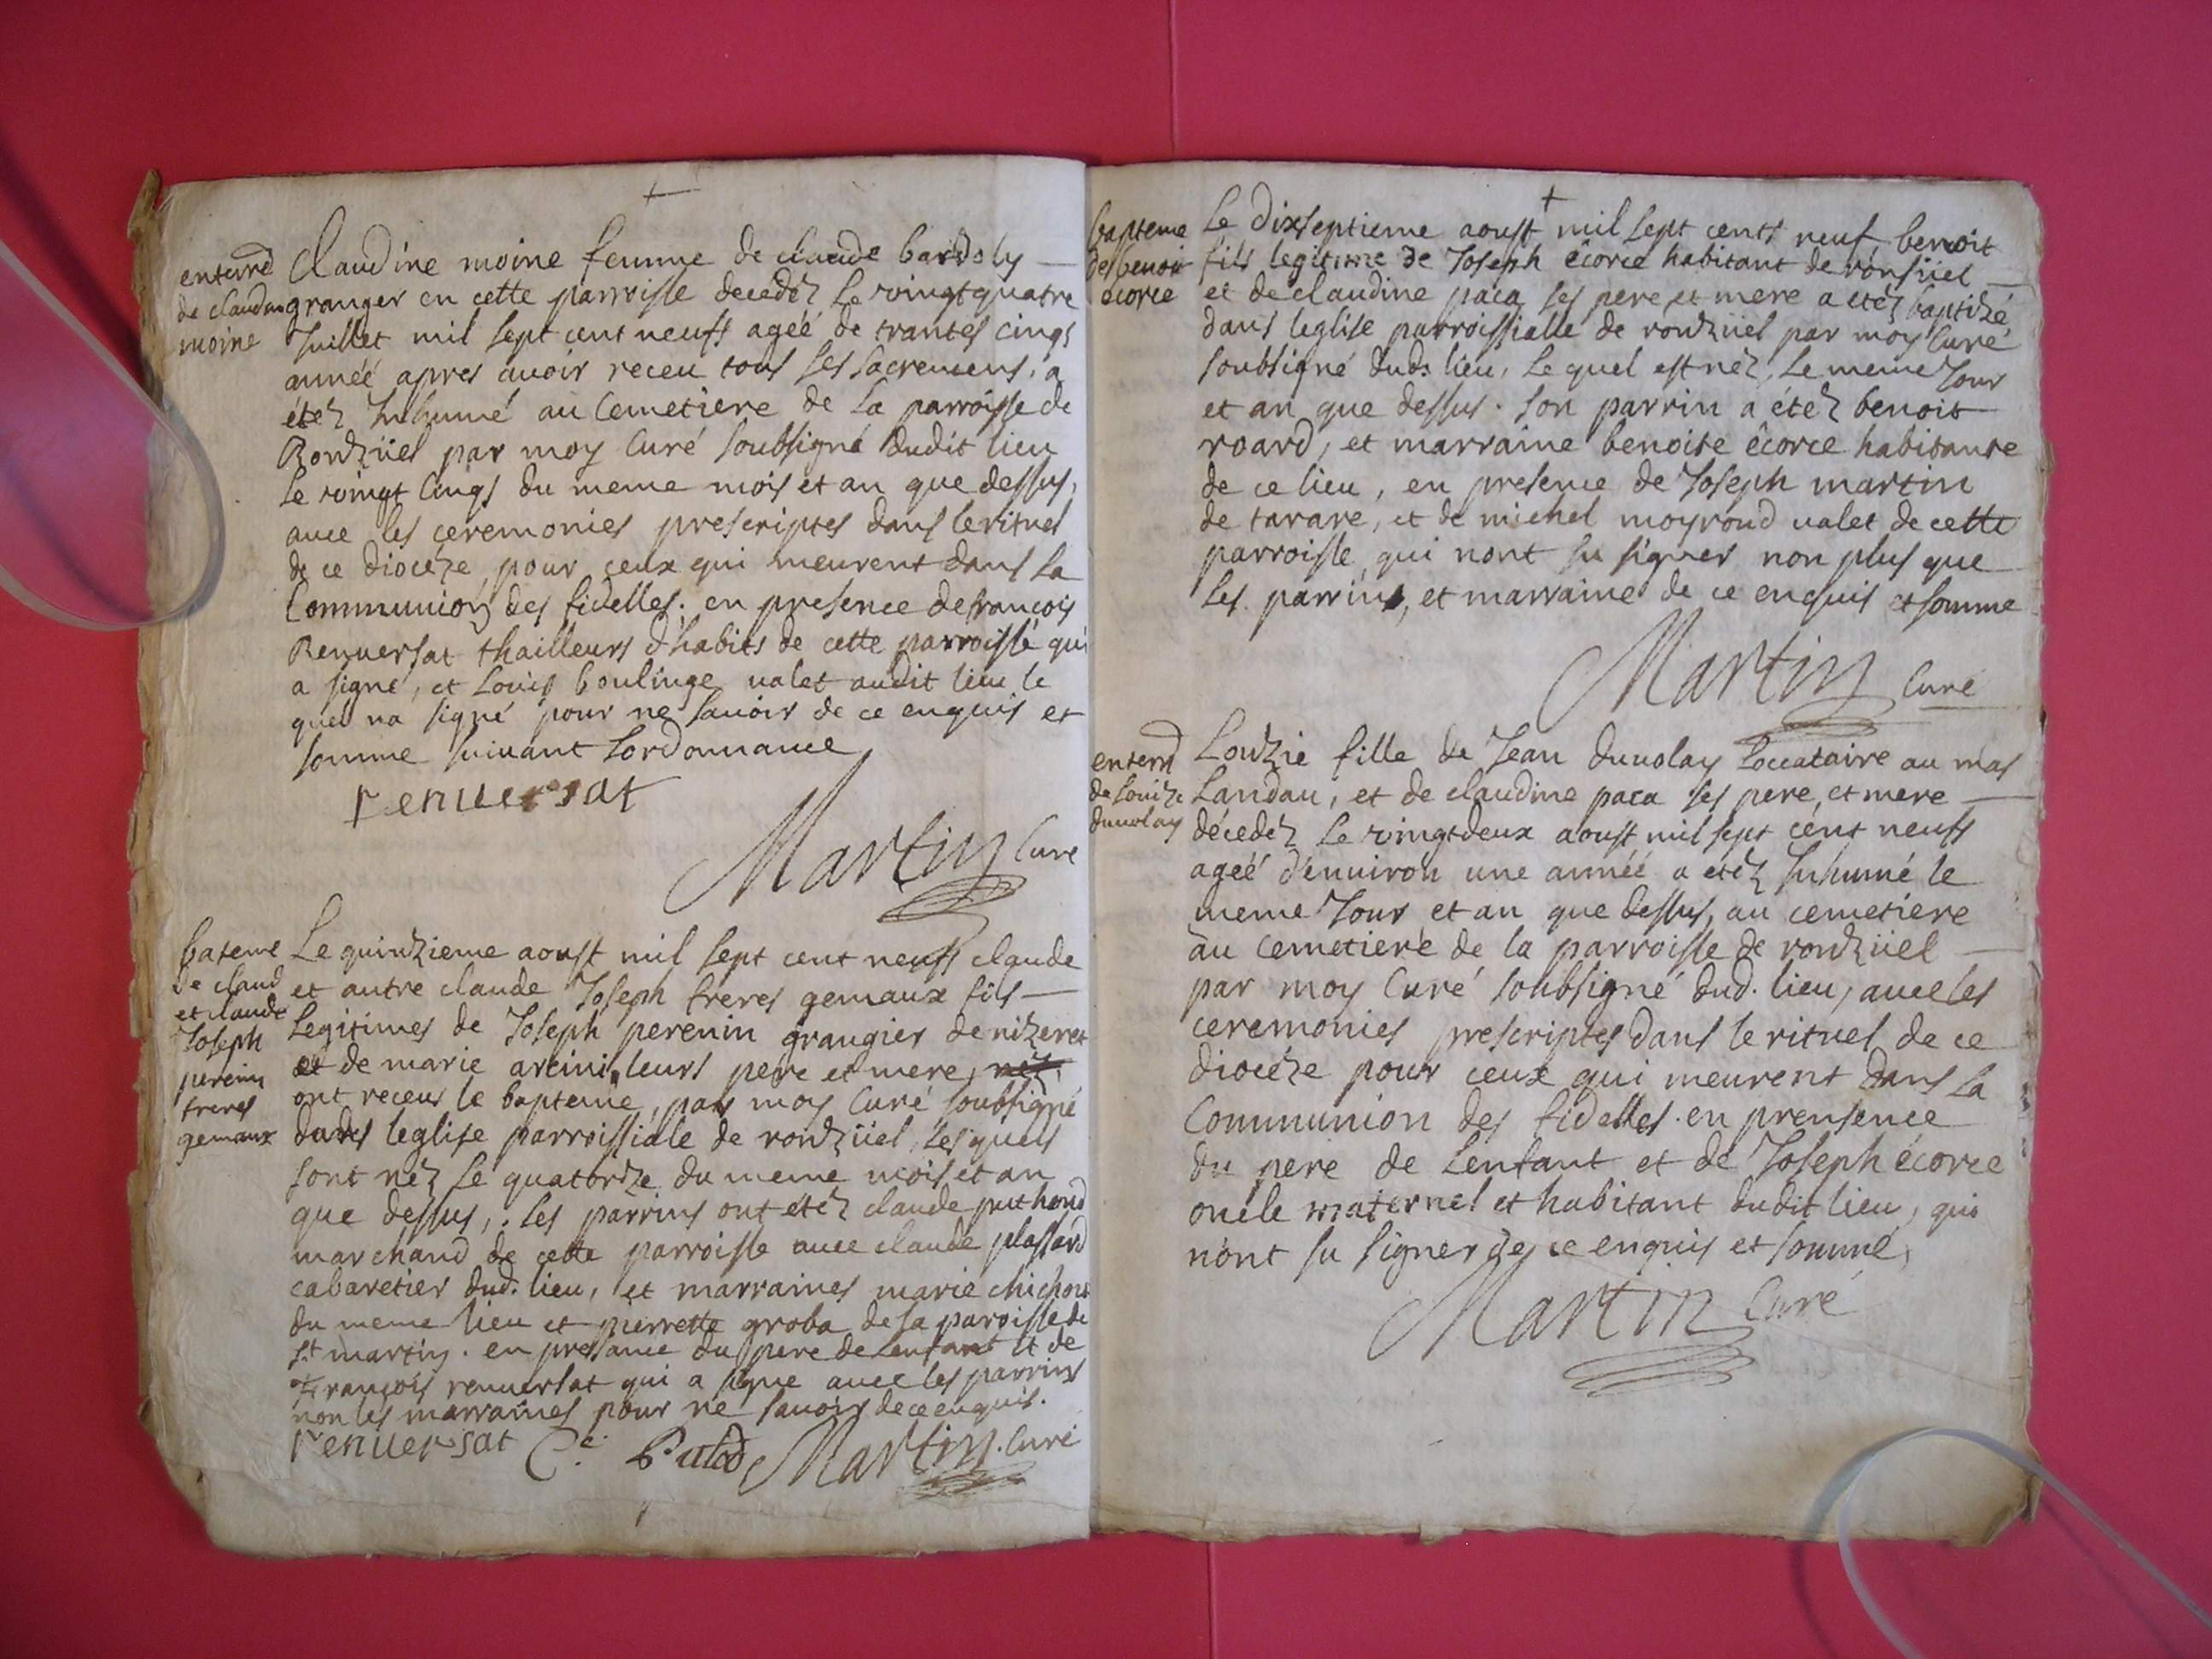 enterrd
de claudin
moine
Claudine moine femme de claude bardoly
granger en cette parroisse decedéz Le vingt quatre
Juillet mil sept cent neufs agéé de trantes cings
annéé apres avoir receu tous ses sacremens, a
étéz Inhumé au Cemetiere de La parroisse de
Ronzüel par moy Curé soubsigné dudit lieu
Le vingt Cings du meme mois et an que dessus,
auec les ceremonies prescriptes dans le rituel
de ce dioceze, pour ceux qui meurent dans La
Communion des fidelles. en presence de françois
Renversat thailleurs d'habits de cette parroisse qui
a signé, et Louis boulinge valet audit lieu le
quel na signé pour ne savoir de ce enquis et
somme suivant Lordonnance
renversat
Martin Curé
bateme
de claud
et claude
Joseph
perenin
freres
gemaux
Le quinzieme aoust mil sept cent neufs claude
et autre claude Joseph freres gemaux fils
Legitimes de Joseph perenin grangier de nizeret
et de marie arcini leurs pere et mere,
ont receus le bapteme, par moy Curé soubsigné
dans leglise parroissiale de ronzüel, lesquels
sont néz Le quatorze du meme mois et an
que dessus, . Les parrins ont étéz claude puthod
marchand de cette parroisse avec claude plassard
cabaretier dud. lieu, et marraines marie chichoux
du meme lieu et pierrette groba de la paroisse de
St martin. en presance du pere de Lenfant et de
François renversat qui a signe avec les parrins
non les marraines pour ne savoir de ce enquis.
renversat Ce. Putod Martin. Curé
bapteme
de benoit
écorce
Le dixseptieme aoust mil sept cents neuf benoit
fils legitime de Joseph écorce habitant de ronsüel
et de claudine paca ses pere et mere a etéz baptizé
dans leglise parroissialle de ronzüel par moy Curé
soubsigné dud. lieu, Le quel est néz Le meme Jour
et an que dessus. Son parrin a étéz benoit
roard, et marraine benoite écorce habitante
de ce lieu, en presence de Joseph martin
de tarare, et de michel moyroud valet de cette
parroisse, qui nont su signer non plus que
Les parrins, et marraine de ce enquis et somme
Martin Curé
enterrd
de Louize
duvolay
Louzie fille de Jean duvolay Loccataire au mas
Landau, et de claudine paca ses pere, et mere
décedéz Le vingtdeux aoust mil sept cent neufs
agéé d'environ une annéé a etéz Inhumé le
meme Jour et an que dessus, au cemetiere
au cemetiere de la parroisse de ronzüel
par moy Curé soubsigné dud. lieu, avec les
ceremonies prescriptes dans le rituel de ce
dioceze pour ceux qui meurent dans La
Communion des fidelles. en prensence
du pere de Lenfant et de Joseph écorce
oncle maternel et habitant dudit lieu, qui
n'ont su signer de ce enquis et sommé,
Martin Curé